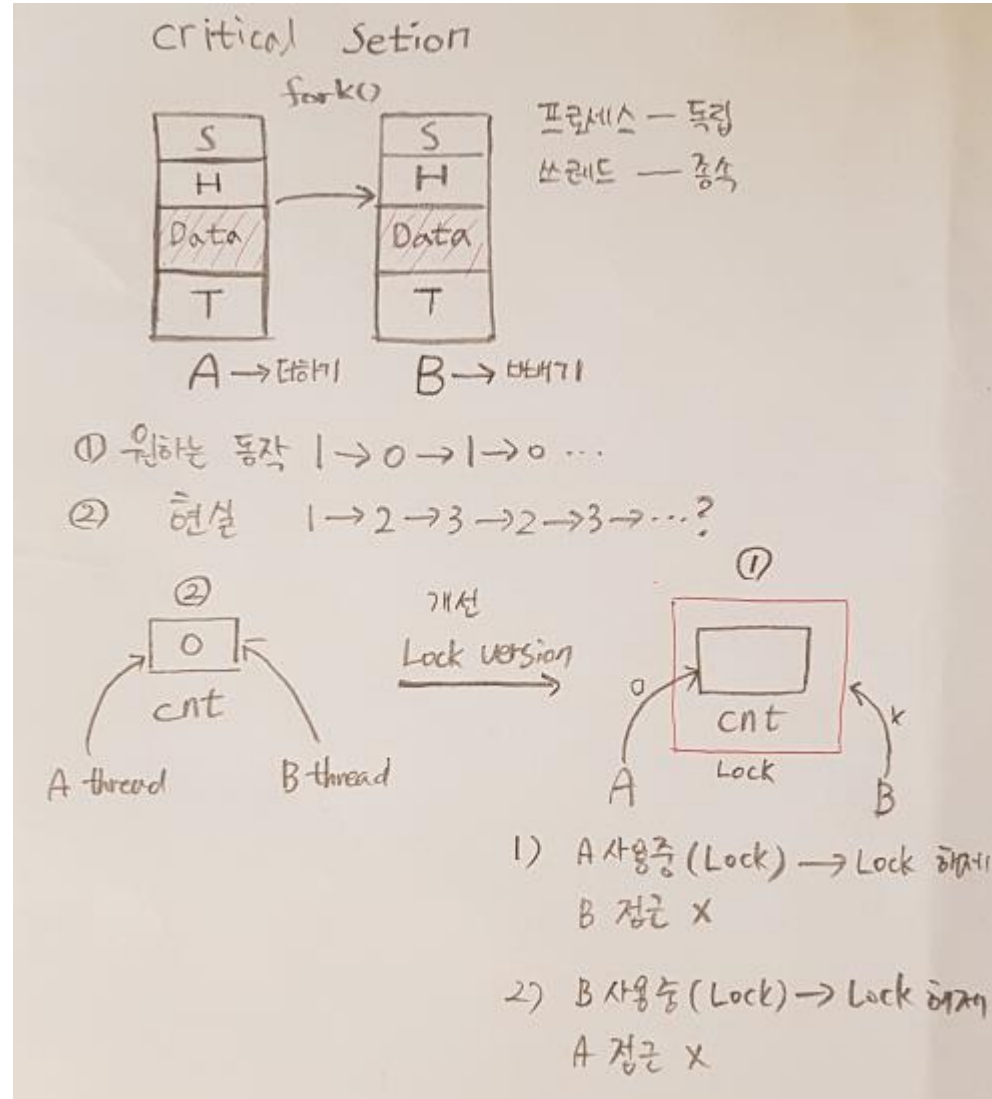 Critical Setion
fork()
S
H
Data
T
S
H
Data
T
프로세스 — 독립
쓰레드 — 종속
A → 더하기
B → 빼기
① 원하는 동작 1 → 0 → 1 → 0 ...
② 현실 1 → 2 → 3 → 2 → 3 → ...?
②
0
cnt
A thread
B thread
개선
Lock version
①
cnt
Lock
o
A
x
B
1) A 사용중 (Lock) → Lock 해제
B 접근 X
2) B 사용중 (Lock) → Lock 해제
A 접근 X